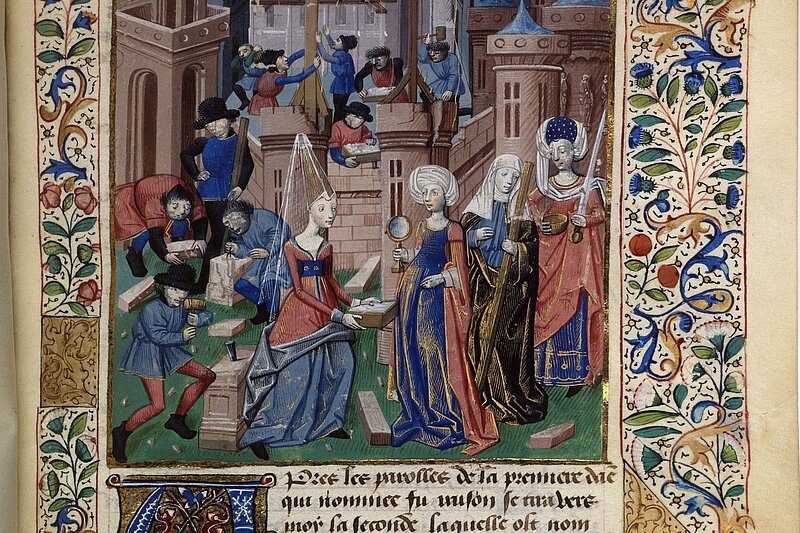 Apres les parolles de la premiere dãe
qui nommee fu raison se tira vers
moy la seconde laquelle ost nom